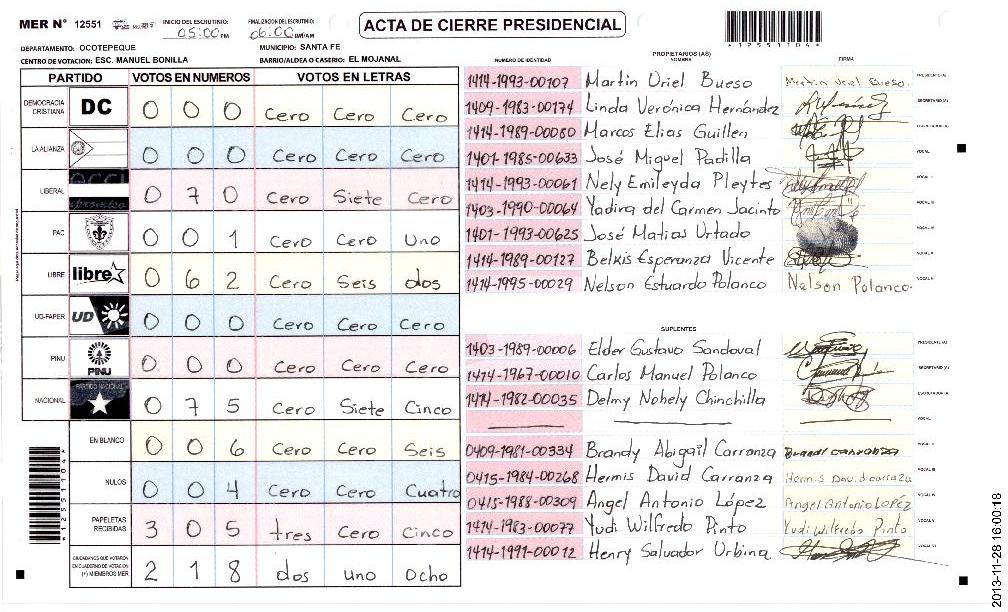 MER N° 12551
INICIO DEL ESCRUTINIO: 05:00 PM
FINALIZACION DEL ESCRUTINIO: 06:00 PM/AM
ACTA DE CIERRE PRESIDENCIAL
*12551104*
DEPARTAMENTO: OCOTEPEQUE
MUNICIPIO: SANTA FE
CENTRO DE VOTACION: ESC. MANUEL BONILLA
BARRIO/ALDEA O CASERIO: EL MOJANAL
PARTIDO VOTOS EN NUMEROS VOTOS EN LETRAS
DEMOCRACIA CRISTIANA DC 0 0 0 Cero Cero Cero
LA ALIANZA 0 0 0 Cero Cero Cero
LIBERAL 0 7 0 Cero Siete Cero
PAC 0 0 1 Cero Cero Uno
LIBRE libre 0 6 2 Cero Seis dos
UD-FAPER UD 0 0 0 Cero Cero Cero
PINU PINU 0 0 0 Cero Cero Cero
NACIONAL PARTIDO NACIONAL 0 7 5 Cero Siete Cinco
EN BLANCO 0 0 6 Cero Cero Seis
NULOS 0 0 4 Cero Cero Cuatro
PAPELETAS RECIBIDAS 3 0 5 tres Cero Cinco
CIUDADANOS QUE VOTARON EN CUADERNO DE VOTACION (+) MIEMBROS MER 2 1 8 dos uno Ocho
*12551104*
PROPIETARIOS (AS)
NUMERO DE IDENTIDAD NOMBRE FIRMA
1414-1993-00107 Martin Uriel Bueso Martin Uriel Bueso. PRESIDENTE (A)
1409-1983-00174 Linda Verónica Hernández SECRETARIO (A)
1414-1989-00080 Marcos Elias Guillen ESCRUTADOR (A)
1401-1985-00633 José Miguel Padilla VOCAL I
1414-1993-00061 Nely Emileyda Pleytes VOCAL II
1403-1990-00064 Yadira del Carmen Jacinto VOCAL III
1401-1993-00625 José Matias Urtado VOCAL IV
1414-1989-00127 Belkis Esperanza Vicente VOCAL V
1414-1995-00029 Nelson Estuardo Polanco Nelson Polanco. VOCAL VI
SUPLENTES
1403-1989-00006 Elder Gustavo Sandoval PRESIDENTE (A)
1414-1967-00010 Carlos Manuel Polanco SECRETARIO (A)
1414-1982-00035 Delmy Nohely Chinchilla ESCRUTADOR (A)
VOCAL I
0409-1981-00334 Brandy Abigail Carranza Brandi carranza VOCAL II
0415-1984-00268 Hermis David Carranza Hermis David carraza VOCAL III
0415-1988-00309 Angel Antonio López Angel Antonio LOPÉZ VOCAL IV
1414-1983-00077 Yudi Wilfredo Pinto Yudi Wilfredo Pinto VOCAL V
1414-1991-00012 Henry Salvador Urbina VOCAL VI
2013-11-28 16:00:18